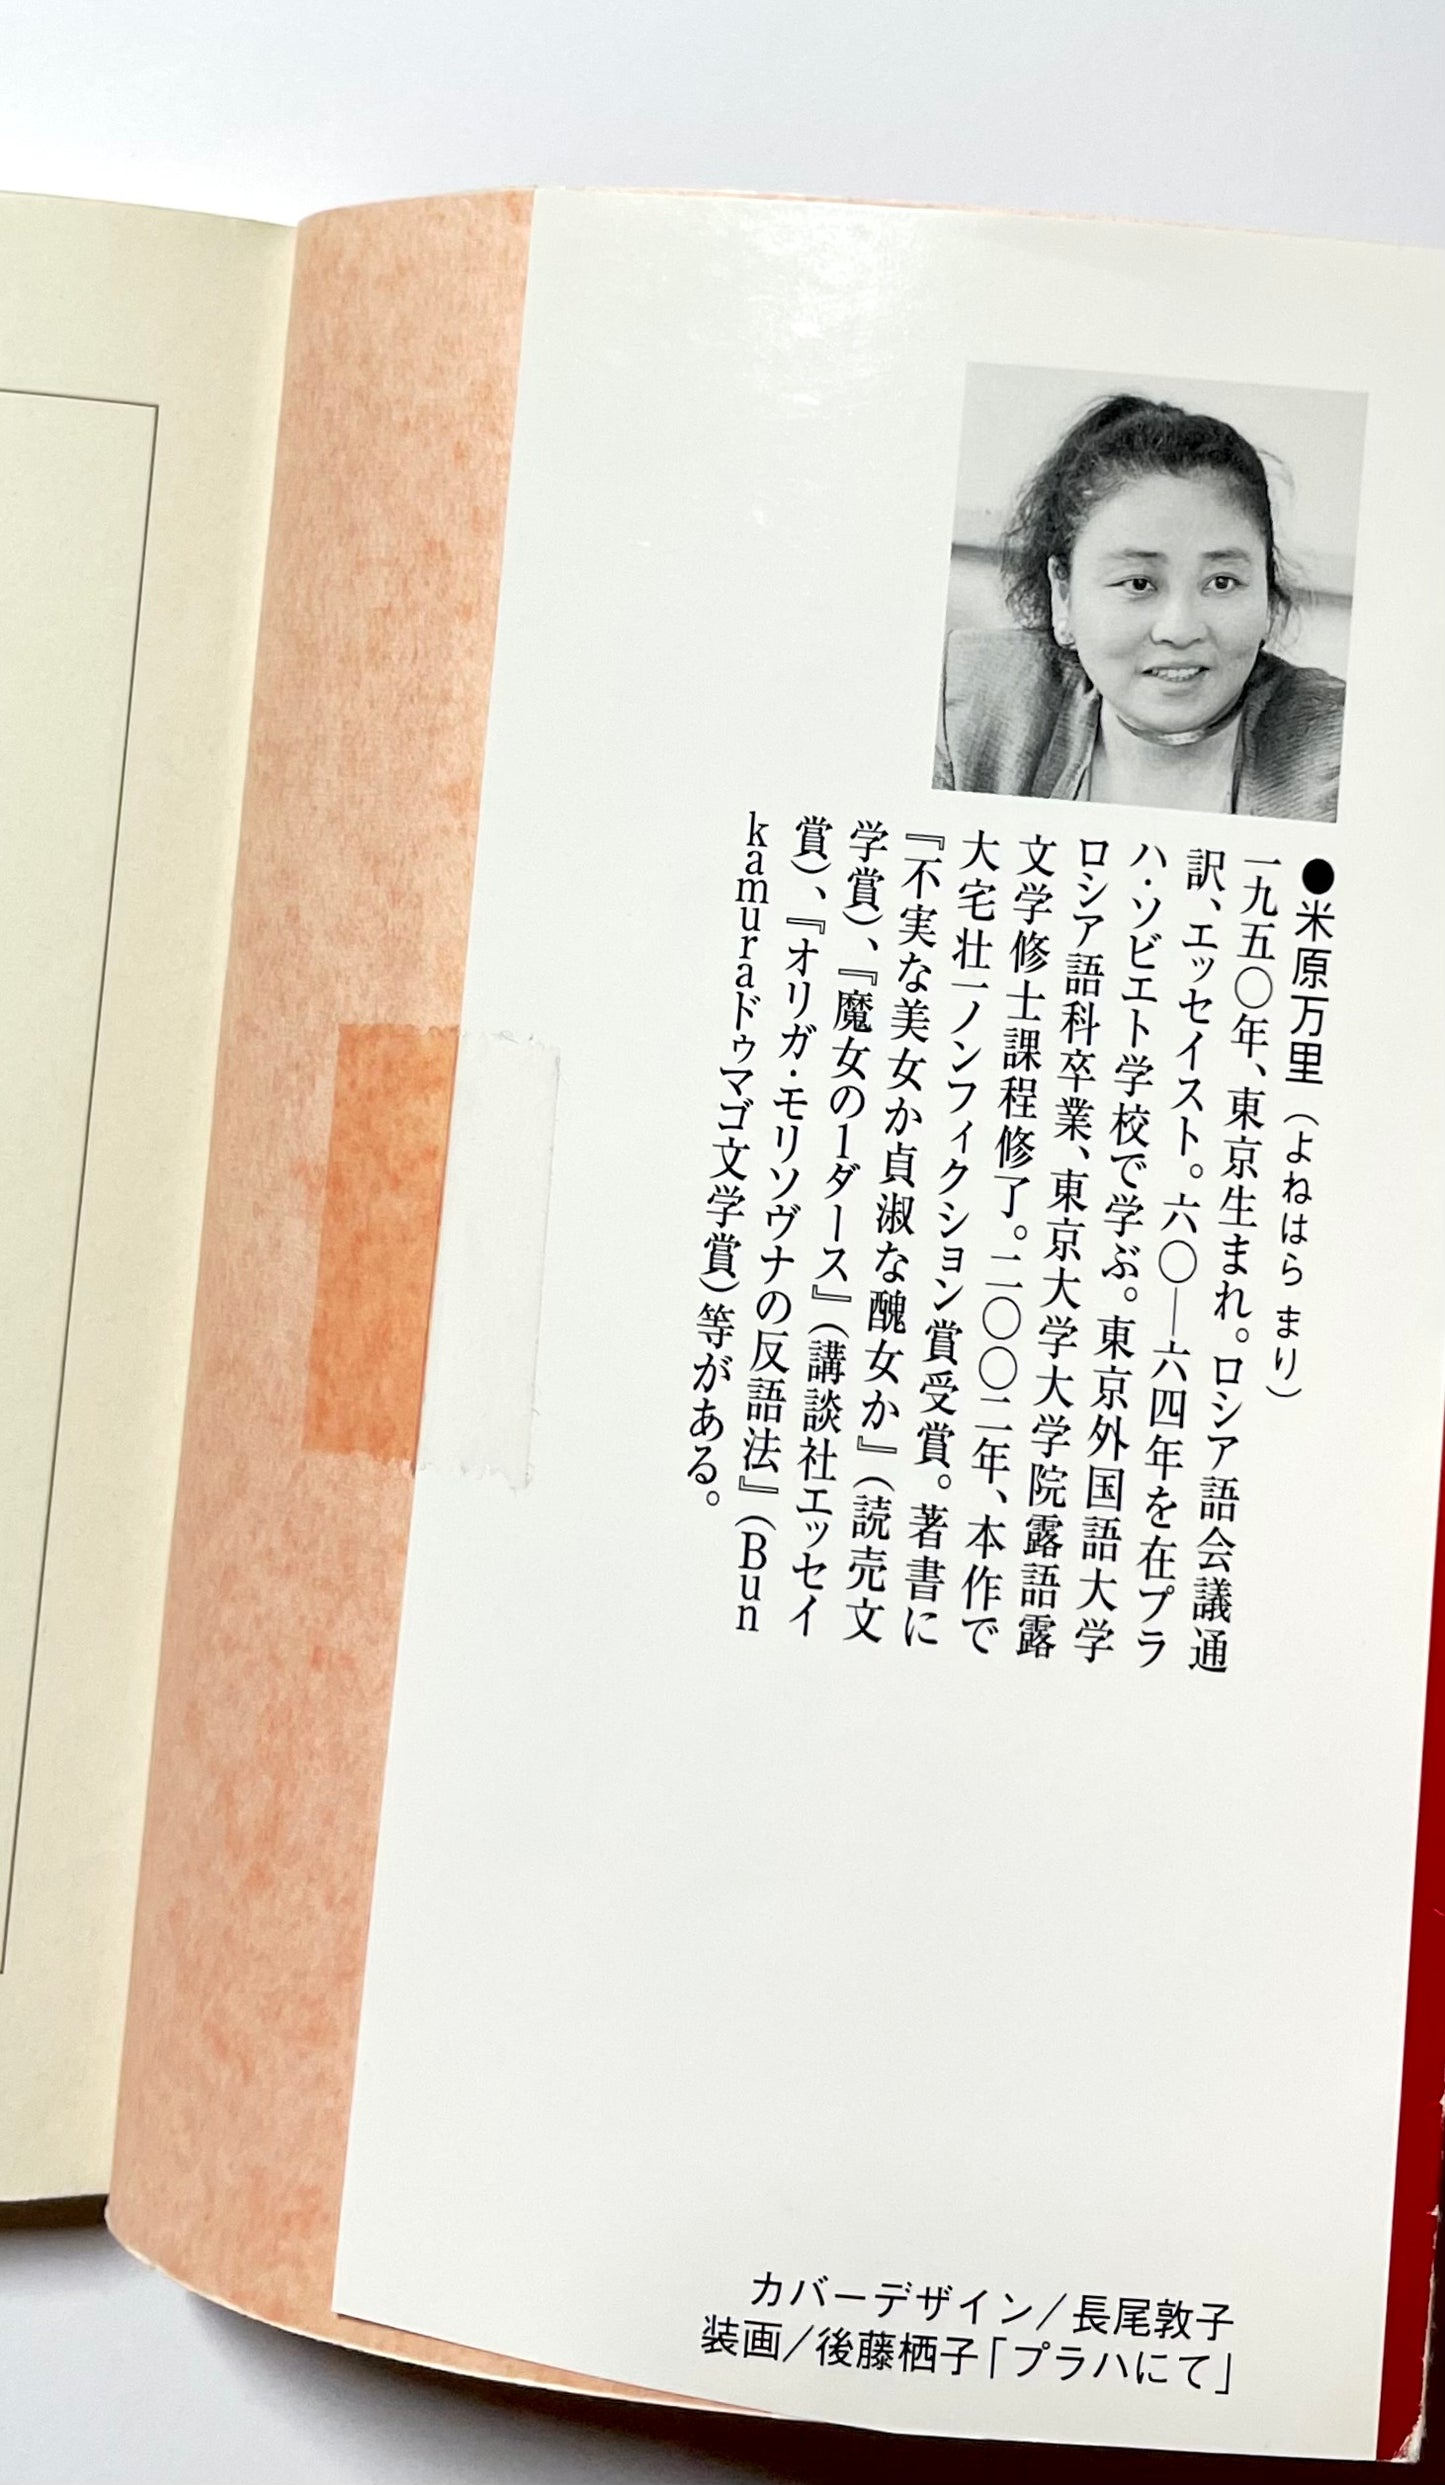 ●米原万里（よねはら まり）
一九五〇年、東京生まれ。ロシア語会議通
訳、エッセイスト。六〇―六四年を在プラ
ハ・ソビエト学校で学ぶ。東京外国語大学
ロシア語科卒業、東京大学大学院露語露
文学修士課程修了。二〇〇二年、本作で
大宅壮一ノンフィクション賞受賞。著書に
『不実な美女か貞淑な醜女か』（読売文
学賞）、『魔女の1ダース』（講談社エッセイ
賞）、『オリガ・モリソヴナの反語法』（Bun
kamuraドゥマゴ文学賞）等がある。
カバーデザイン／長尾敦子
装画／後藤栖子「プラハにて」